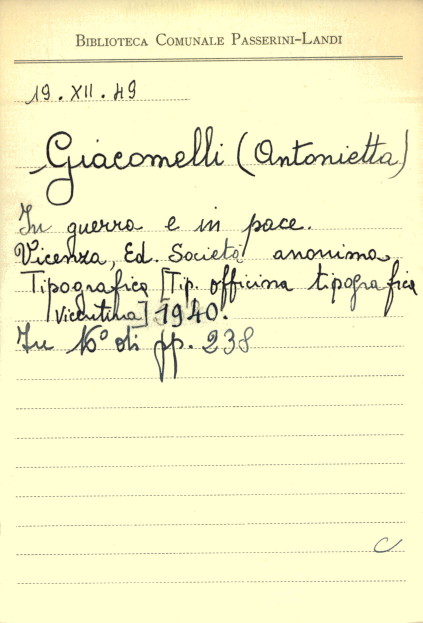 BIBLIOTECA COMUNALE PASSERINI-LANDI
19.XII.49
Giacomelli (Antonietta)
In guerra e in pace.
Vicenza, Ed. Società anonima
Tipografica [Tip. officina tipografica
Vicentina] 1940.
In 16° di pp. 238
C